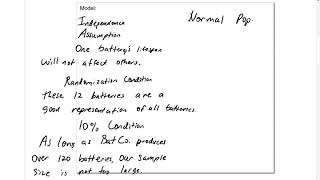 Model:
Independence
Assumption
One battery's lifespan
Will not affect others.
Randomization Condition
These 12 batteries are a
good representation of all batteries.
10% Condition
As long as Bat Co. produces
Over 120 batteries, Our sample
Size is not too large.
Normal Pop.